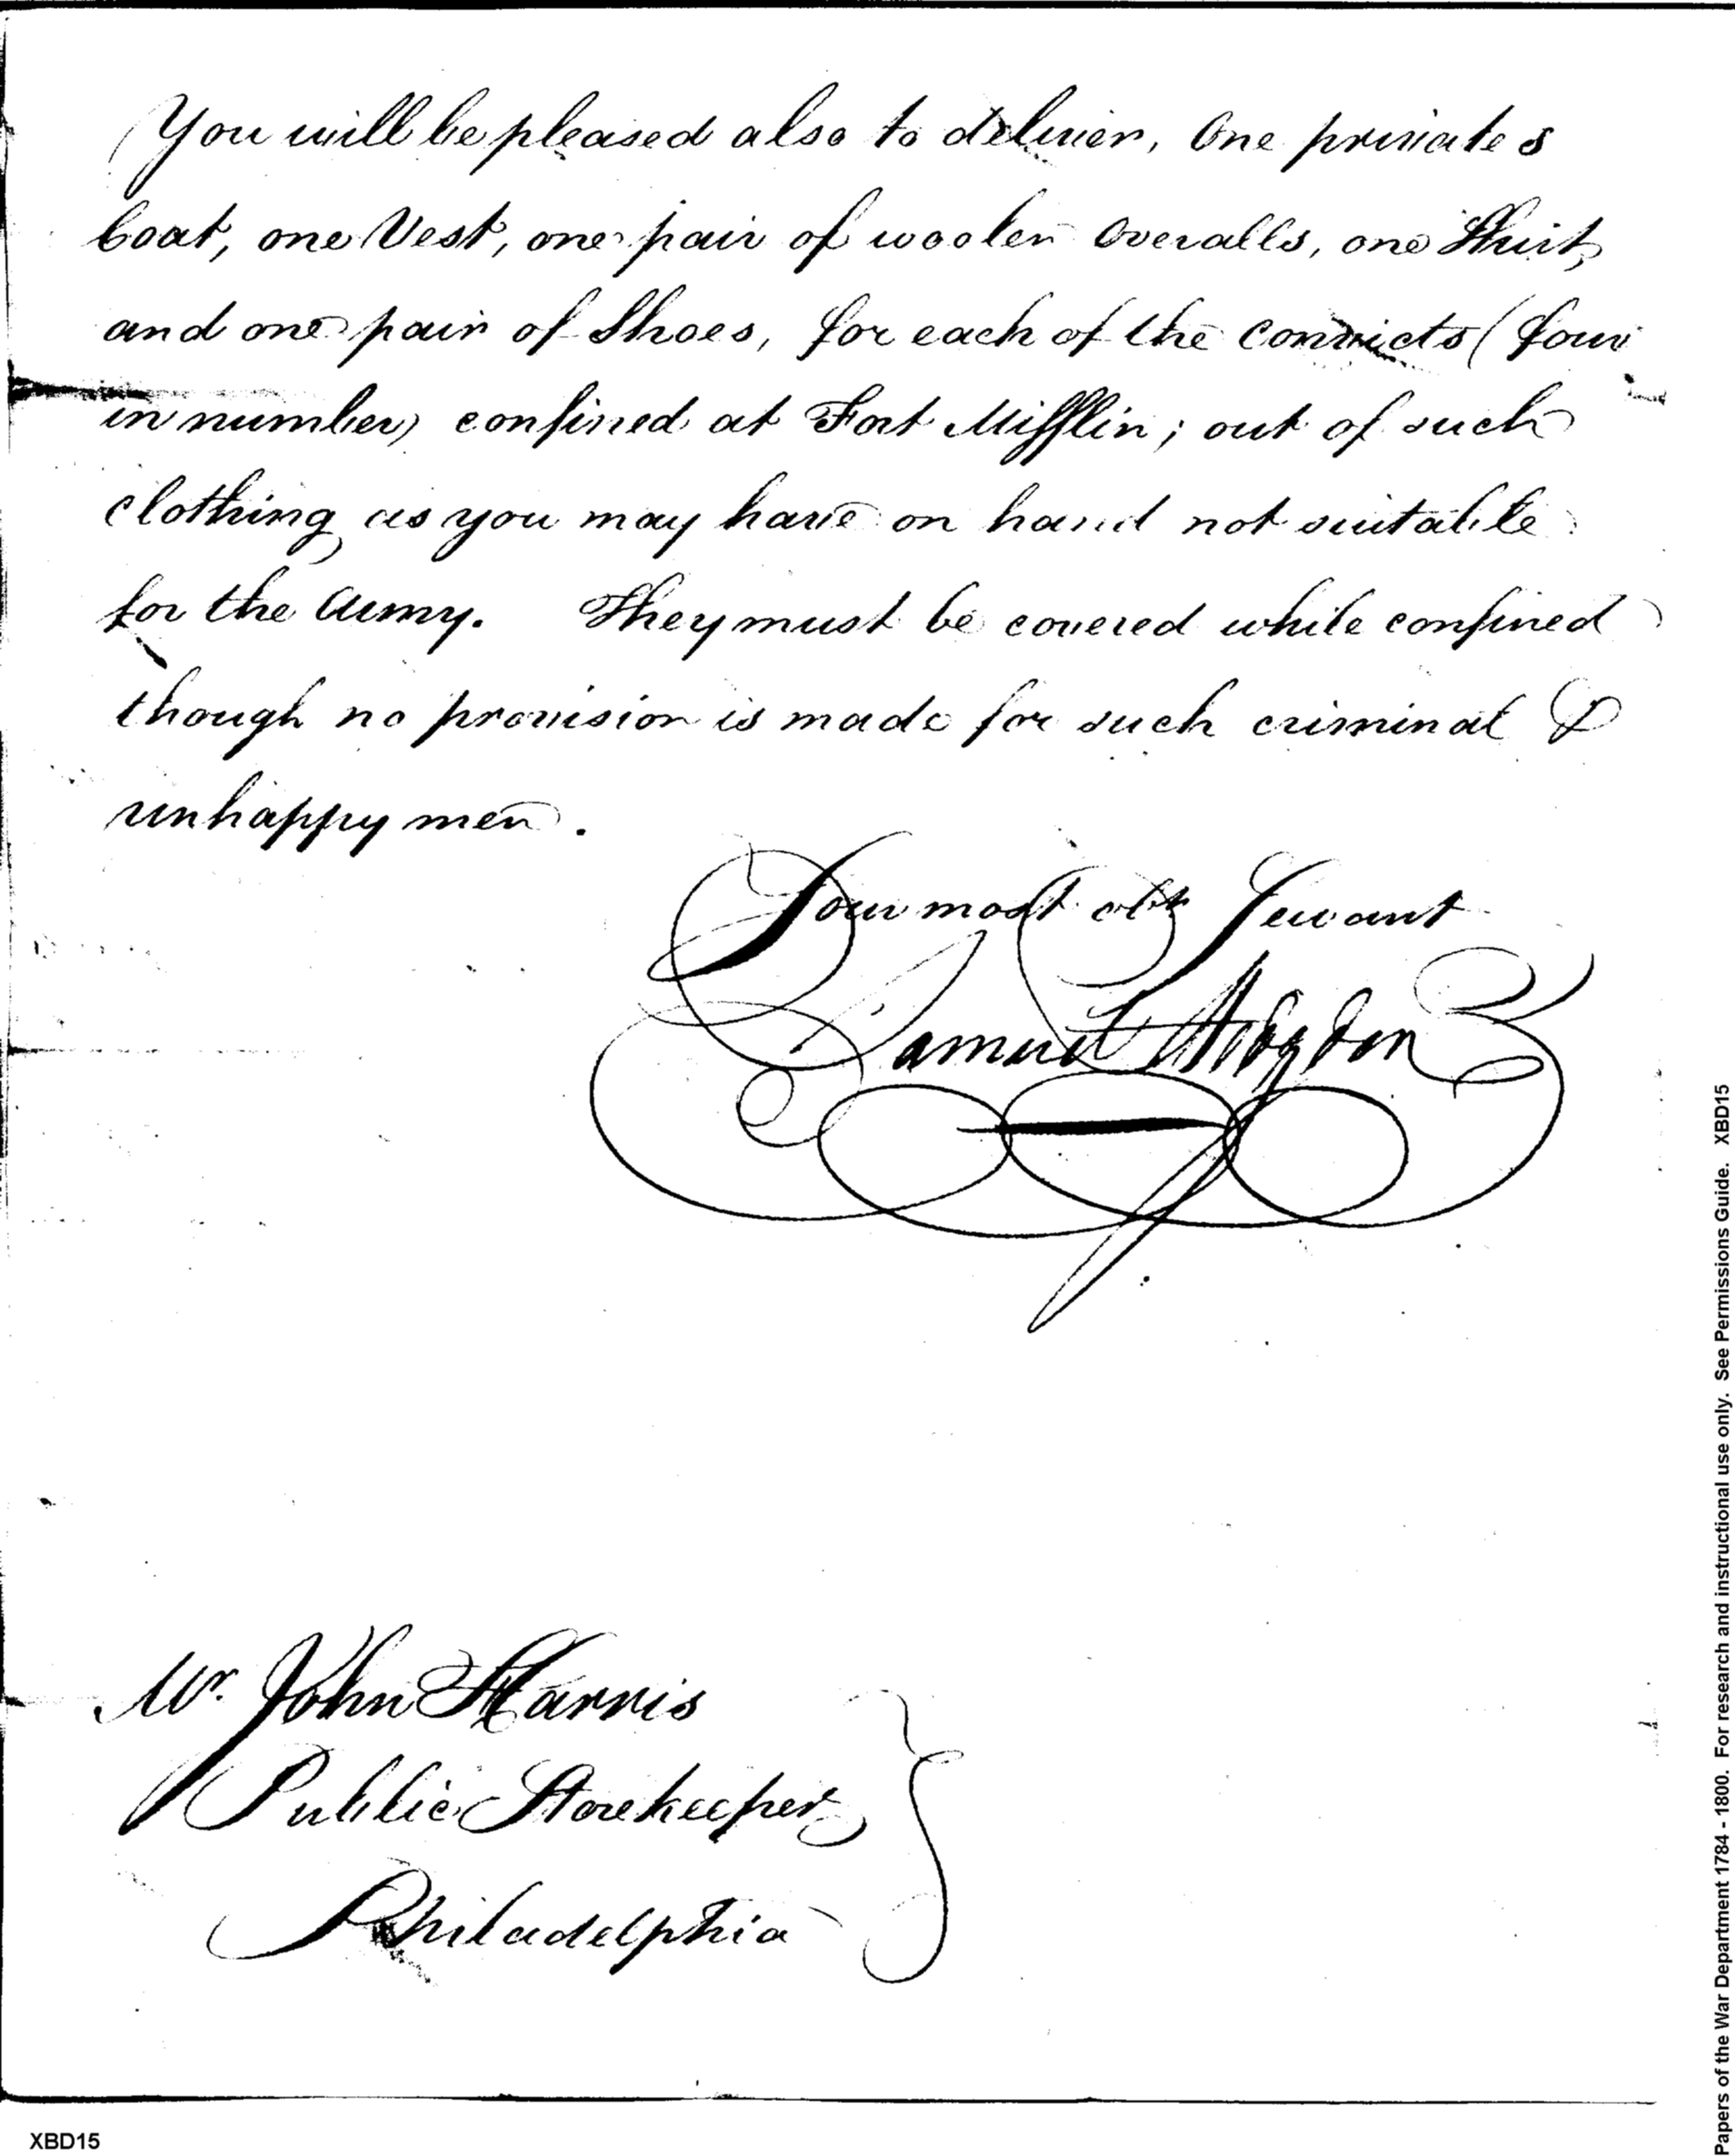 You will be pleased also to deliver, One privates
Coat, one Vest, one pair of woolen Overalls, one Shirt,
and one pair of Shoes, for each of the convicts (four
in number) confined at Fort Mifflin; out of such
clothing as you may have on hand not suitable
for the Army. They must be covered while confined
though no provision is made for such criminal &
unhappy men.
Your most obt Servant
Samuel Hodgdon
Mr. John Harris
Public Storekeeper
Philadelphia
Papers of the War Department 1784 - 1800. For research and instructional use only. See Permissions Guide. XBD15
XBD15